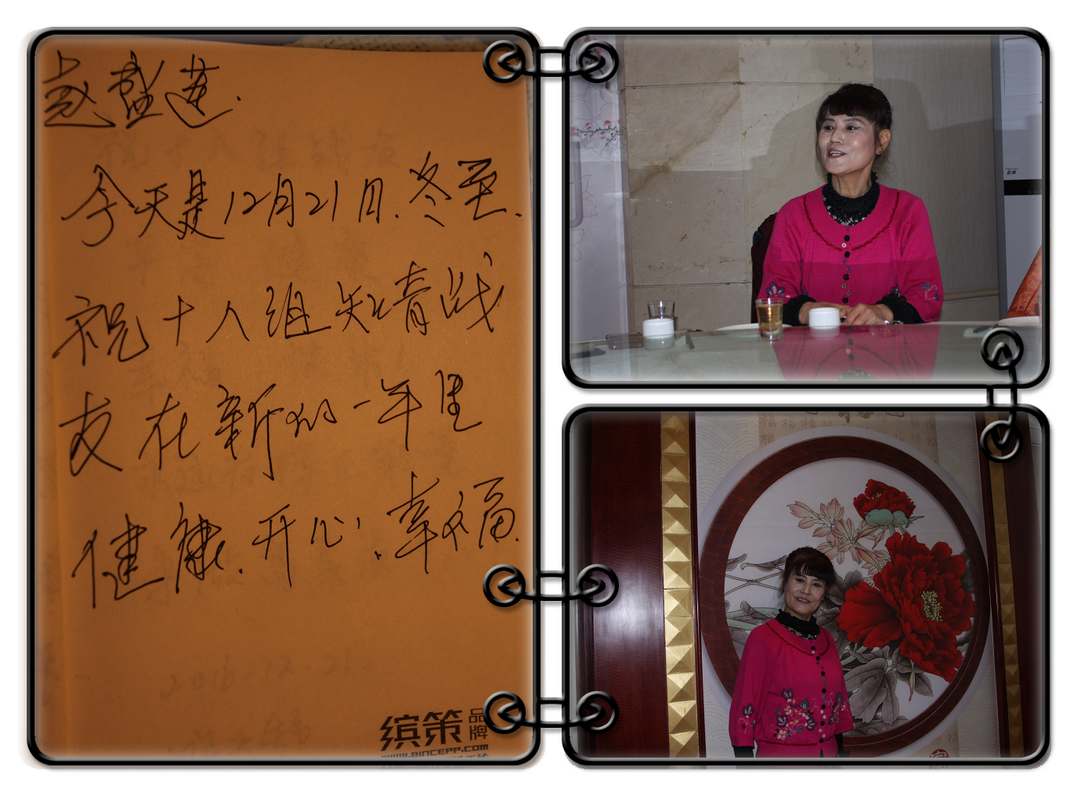 赵盛莲.
今天是12月21日.冬至.
祝十八组知青战
友在新的一年里
健康.开心.幸福.
2016-12.21.
缤策品牌
WWW.BINCEPP.COM